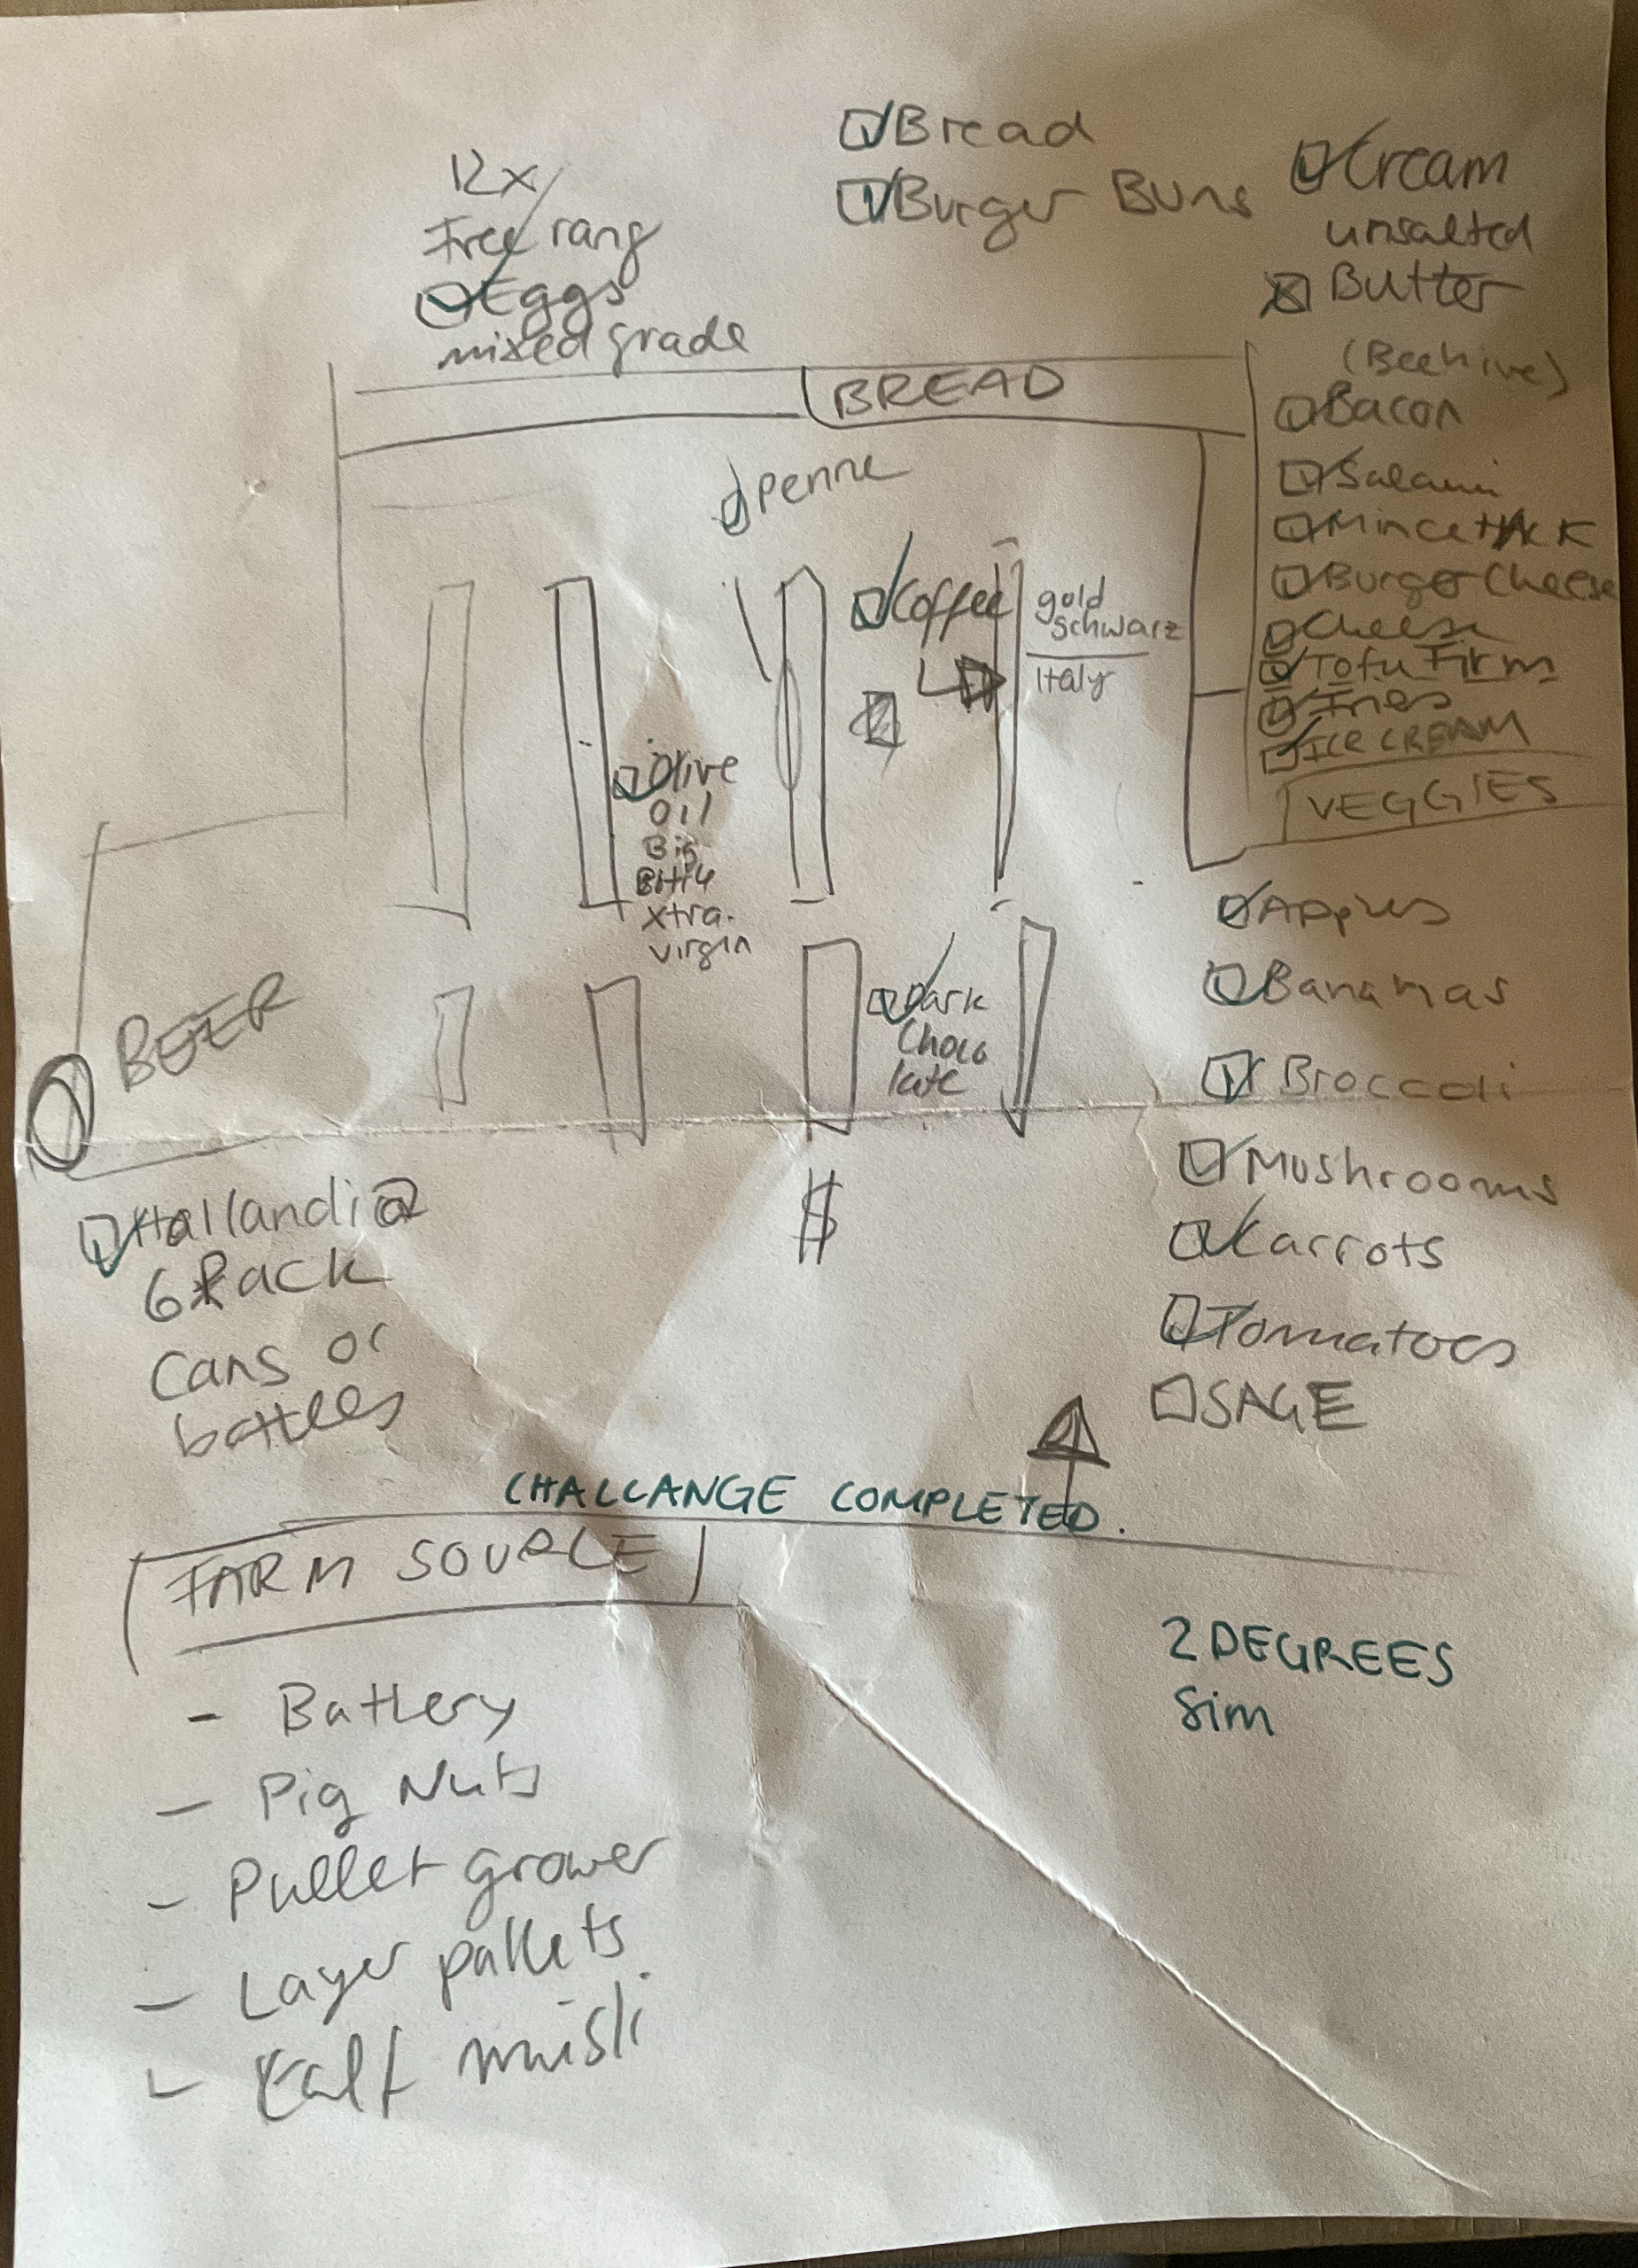 12x
Free rang
Eggs
mixed grade
Bread
Burger Buns
Cream
unsalted
Butter
(Beehive)
Bacon
Salami
Mince
Burger Cheese
Cheese
Tofu Firm
Fries
ICE CREAM
VEGGIES
BREAD
Penne
Coffee
gold
schwarz
Italy
Olive
Oil
Big
xtra.
virgin
Dark
Choco
late
BEER
Hallandia
6Pack
Cans or
bottles
$
Apples
Bananas
Broccoli
Mushrooms
Carrots
Tomatoes
SAGE
CHALLANGE COMPLETED.
FARM SOURCE
- Battery
- Pig Nuts
- Pullet grower
- Layer pallets
- Kalf muisli
2DEGREES
Sim